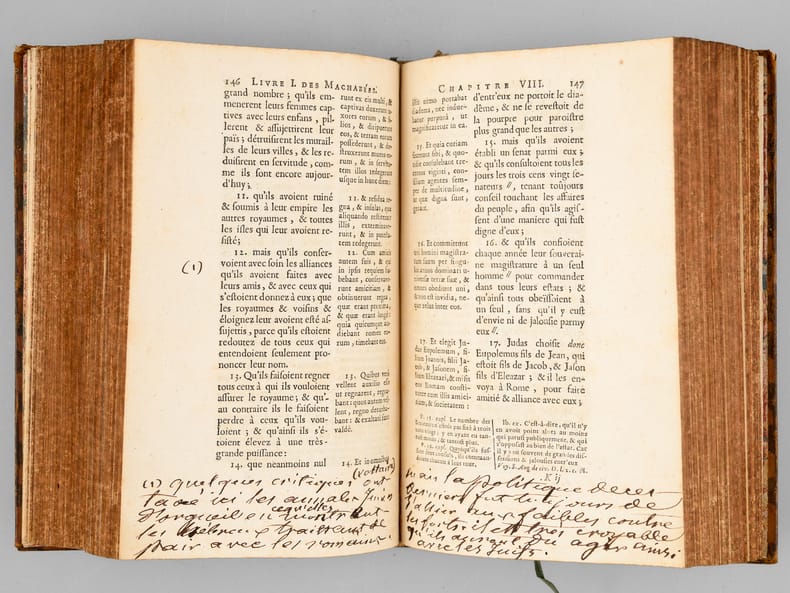 146 LIVRE I. DES MACHABÉES.
grand nombre ; qu'ils em-
menerent leurs femmes cap-
tives avec leurs enfans, pil-
lerent & assujetirent leur
païs ; détruisirent les murail-
les de leurs villes, & les re-
duisirent en servitude, com-
me ils sont encore aujour-
d'huy ;
11. qu'ils avoient ruiné
& soumis à leur empire les
autres royaumes, & toutes
les isles qui leur avoient re-
sisté ;
12. mais qu'ils conser-
voient avec soin les alliances
qu'ils avoient faites avec
leurs amis, & avec ceux qui
s'estoient donnez à eux ; que
les royaumes & voisins &
éloignez leur avoient esté as-
sujettis, parce qu'ils estoient
redoutez de tous ceux qui
entendoient seulement pro-
noncer leur nom.
13. Qu'ils faisoient regner
tous ceux à qui ils vouloient
assurer le royaume ; & qu'-
au contraire ils le faisoient
perdre à ceux qu'ils vou-
loient ; & qu'ainsi ils s'é-
toient élevez à une tres-
grande puissance :
14. que neanmoins nul
runt ex eis multi, &
captivas duxerunt
uxores eorum, & fi-
lios, & diripuerunt
eos, & terram eorum
possederunt, & de-
struxerunt muros eo-
rum, & in servitu-
tem illos redegerunt
usque in hunc diem :
11. & residua re-
gna, & insulas, quæ
aliquando restiterant
illis, extermina-
runt, & in potesta-
tem redegerunt.
12. Cum amicis
autem suis, & qui
in ipsis requiem ha-
bebant, conserva-
runt amicitiam, &
obtinuerunt regna,
quæ erant proxima,
& quæ erant longè :
quia quicumque au-
diebant nomen eo-
rum, timebant eos.
13. Quibus verò
vellent auxilio esse
ut regnarent, regna-
bant : quos autem vel-
lent, regno deturba-
bant : & exaltati sunt
valdè.
14. Et in omnibus
(1)
(voltaire)
(1) quelques critiques ont
d'orgueil en
les hebreux traittant de
pair avec les romains.
CHAPITRE VIII. 147
istis nemo portabat
diadema, nec indue-
batur purpurâ, ut
magnificaretur in ea.
15. Et quia curiam
fecerunt sibi, & quo-
tidie consulebant tre-
centos viginti, consi-
lium agentes semper
de multitudine,
ut quæ digna sunt,
gerant.
16. Et committunt
uni homini magistra-
tum suum per singu-
los annos dominari u-
niversæ terræ suæ, &
omnes obediunt uni,
& non est invidia, ne-
que zelus inter eos.
17. Et elegit Ju-
das Eupolemum, fi-
lium Joannis, filii Ja-
cob, & Jasonem, fi-
lium Eleazari, & misit
eos Romam consti-
tuere cum illis amici-
tiam, & societatem :
d'entr'eux ne portoit le dia-
dême, & ne se revestoit de
la pourpre pour paroistre
plus grand que les autres ;
15. mais qu'ils avoient
établi un senat parmi eux ;
& qu'ils consultoient tous les
jours les trois cens vingt se-
nateurs //, tenant toujours
conseil touchant les affaires
du peuple, afin qu'ils agis-
sent d'une maniere qui fust
digne d'eux ;
16. & qu'ils confioient
chaque année leur souverai-
ne magistrature à un seul
homme // pour commander
dans tous leurs estats ; &
qu'ainsi tous obeïssoient à
un seul, sans qu'il y eust
d'envie ni de jalousie parmy
eux //.
17. Judas choisit donc
Eupolemus fils de Jean, qui
estoit fils de Jacob, & Jason
fils d'Eleazar ; & il les en-
voya à Rome, pour faire
amitié & alliance avec eux ;
℣. 15. expl. Le nombre des
Senateurs n'estoit pas fixé à trois
cens vingt ; y en ayant eu tan-
tost moins, & tantost plus.
Ib. ex. C'est-à-dire, qu'il n'y
en avoit point alors au moins
qui parust publiquement, & qui
s'opposast au bien de l'estat. Car
il y a eu souvent de grandes dis-
sensions & jalousies entr'eux
K ij
mais la politique de ces
derniers fut toujours de
s'allier aux faibles contre
les forts. il est très croyable
qu'ils auront pu agir ainsi
avec les juifs.